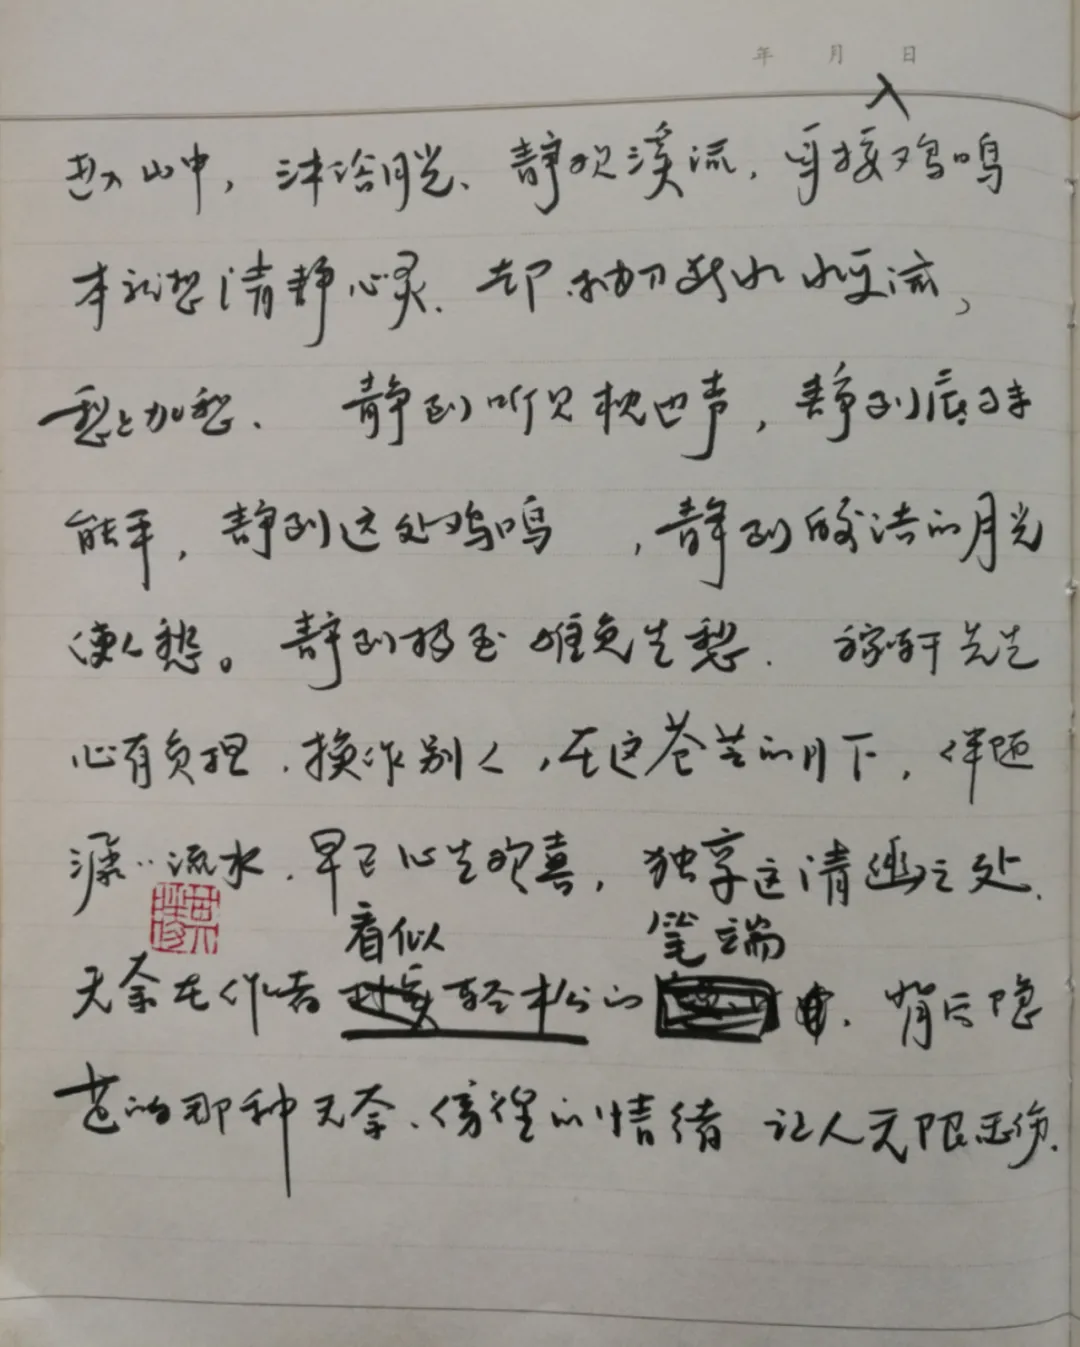 年 月 日
入
进入山中，沐浴月光、静观溪流，耳接鸡鸣
本就想清静心灵、却抽刀断水水更流，
愁上加愁、静到听见枕边声，静到底
能平，静到这处鸡鸣，静到皎洁的月光
使人愁。静到极至难免生愁、稼轩先生
心有负担、换作别人，在这苍茫的月下，伴随
潺潺流水、早已心生欢喜，独享这清幽之处、
看似 笔端
无奈在作者轻松的中、背后隐
藏的那种无奈、傍徨的情绪 让人无限悲伤.